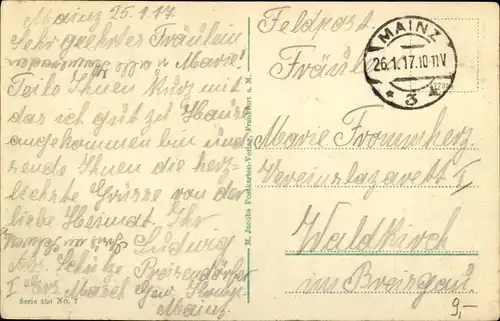 Mainz 25.1.17
Sehr geehrter Fräulein
Marie!
Teile Ihnen kurz mit
das ich gut zu Hause
angekommen bin und
sende Ihnen die herz-
lichste Grüsse von der
liebe Heimat. Ihr
Ludwig
Serie 550 No. 7
Mainz
M. Jacobs Postkarten-Verlag, Frankfurt a. M.
Feldpost
Fräul
MAINZ
26.1.17.10-11V
* 3 *
Marie Frommherz
Vereinslazarett I
Waldkirch
im Breisgau
9,-